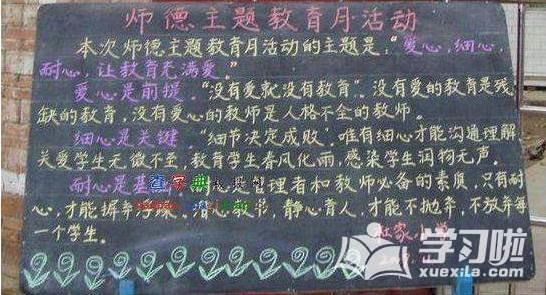 师德主题教育月活动
本次师德主题教育月活动的主题是:"爱心,细心,
耐心,让教育充满爱。"
爱心是前提。"没有爱就没有教育"、没有爱的教育是残
缺的教育,没有爱心的教师是人格不全的教师。
细心是关键。"细节决定成败"。唯有细心才能沟通理解
关爱学生无微不至,教育学生春风化雨,感染学生润物无声。
耐心是基 管理者和教师必备的素质,只有耐
心,才能摒弃浮燥、潜心教书,静心育人,才能不抛弃,不放弃每
一个学生。
学习啦
xuexila.com